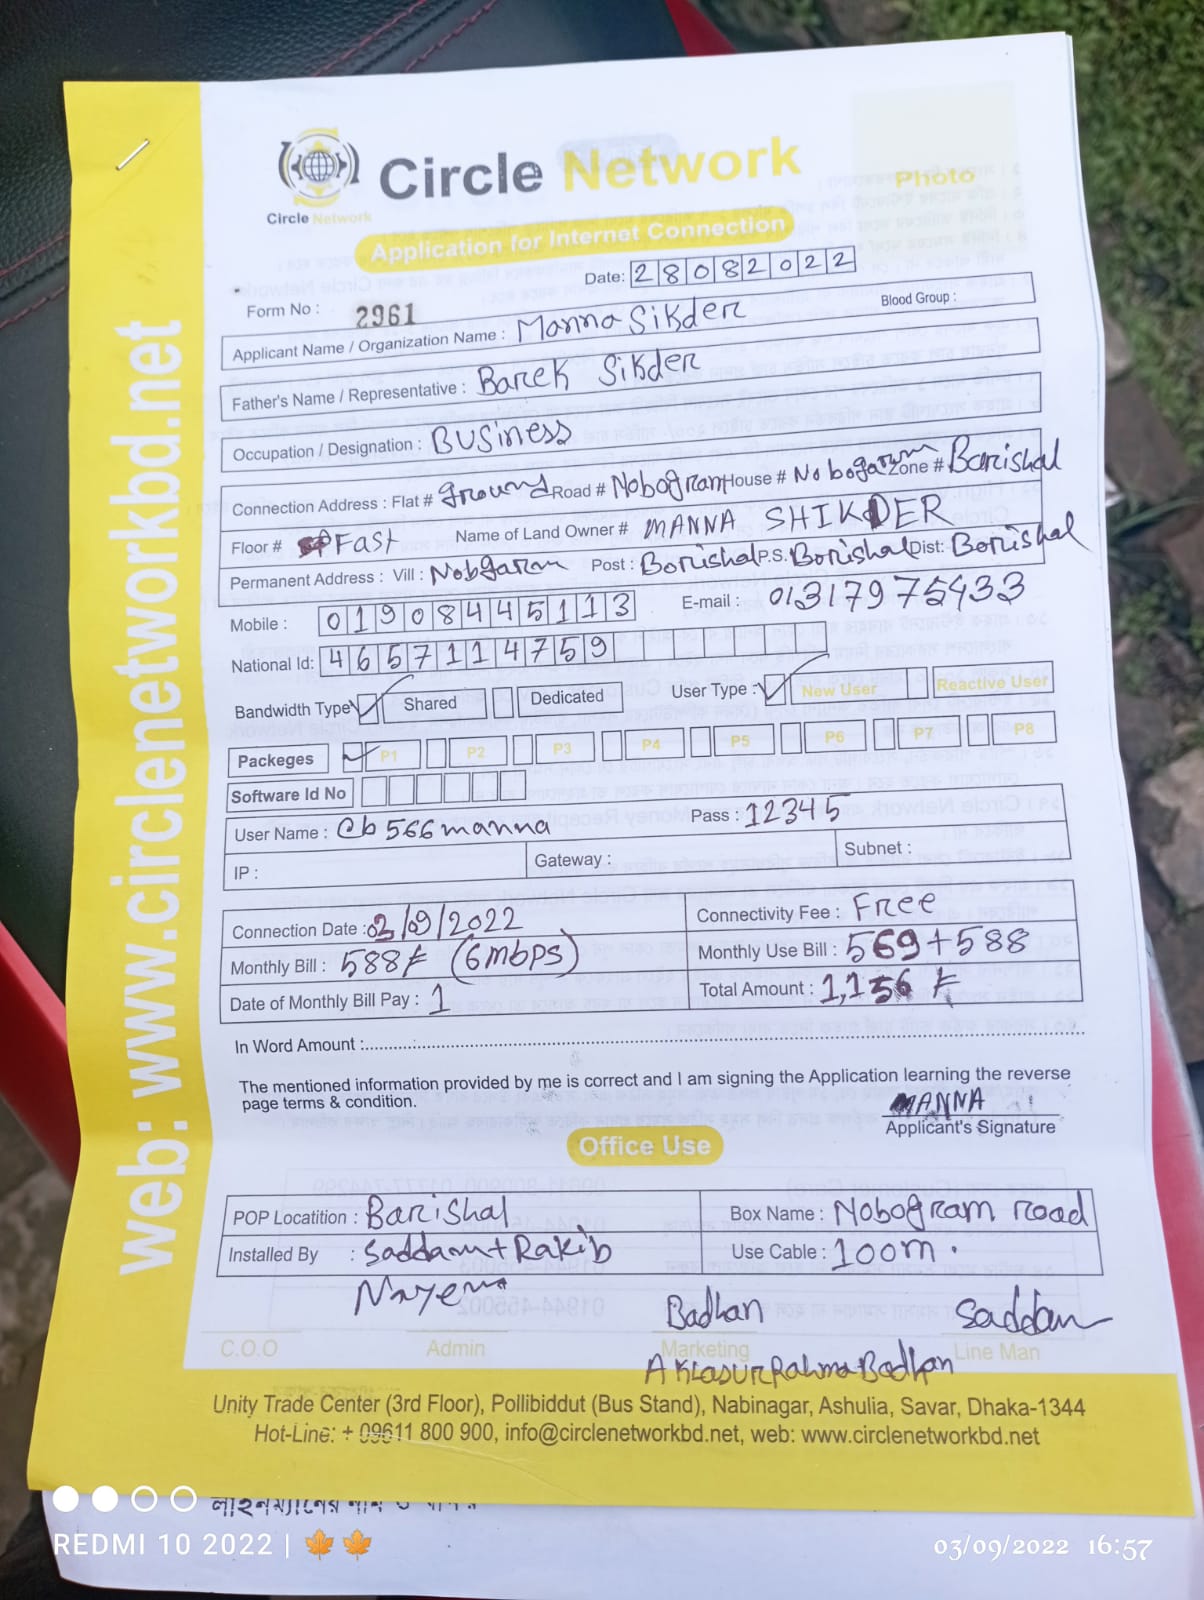 Circle Network
Circle Network
Photo
Application for Internet Connection
Date: 28082022
Form No : 2961
Blood Group :
Applicant Name / Organization Name : Manna Sikder
Father's Name / Representative : Barek Sikder
Occupation / Designation : Business
Connection Address : Flat # ground Road # Nobogram House # Nobogaram Zone # Barishal
Floor # Fast Name of Land Owner # MANNA SHIKDER
Permanent Address : Vill : Nobgaram Post : Borishal P.S. Borishal Dist: Borishal
Mobile : 01908445113 E-mail : 01317975433
National Id: 4657114759
Bandwidth Type Shared Dedicated User Type : New User Reactive User
Packeges P1 P2 P3 P4 P5 P6 P7 P8
Software Id No
User Name : cb566manna Pass : 12345
IP : Gateway : Subnet :
Connection Date : 03/09/2022 Connectivity Fee : Free
Monthly Bill : 588৳ (6mbps) Monthly Use Bill : 569+588
Date of Monthly Bill Pay : 1 Total Amount : 1,156 ৳
In Word Amount :
The mentioned information provided by me is correct and I am signing the Application learning the reverse
page terms & condition.
MANNA
Applicant's Signature
Office Use
POP Locatition : Barishal Box Name : Nobogram road
Installed By : Saddam + Rakib Use Cable : 100m.
Nayem Badhan Saddam
C.O.O Admin Marketing Line Man
Aklasur Rahman Badhan
Unity Trade Center (3rd Floor), Pollibiddut (Bus Stand), Nabinagar, Ashulia, Savar, Dhaka-1344
Hot-Line: + 09611 800 900, info@circlenetworkbd.net, web: www.circlenetworkbd.net
web: www.circlenetworkbd.net
REDMI 10 2022 |
03/09/2022 16:57